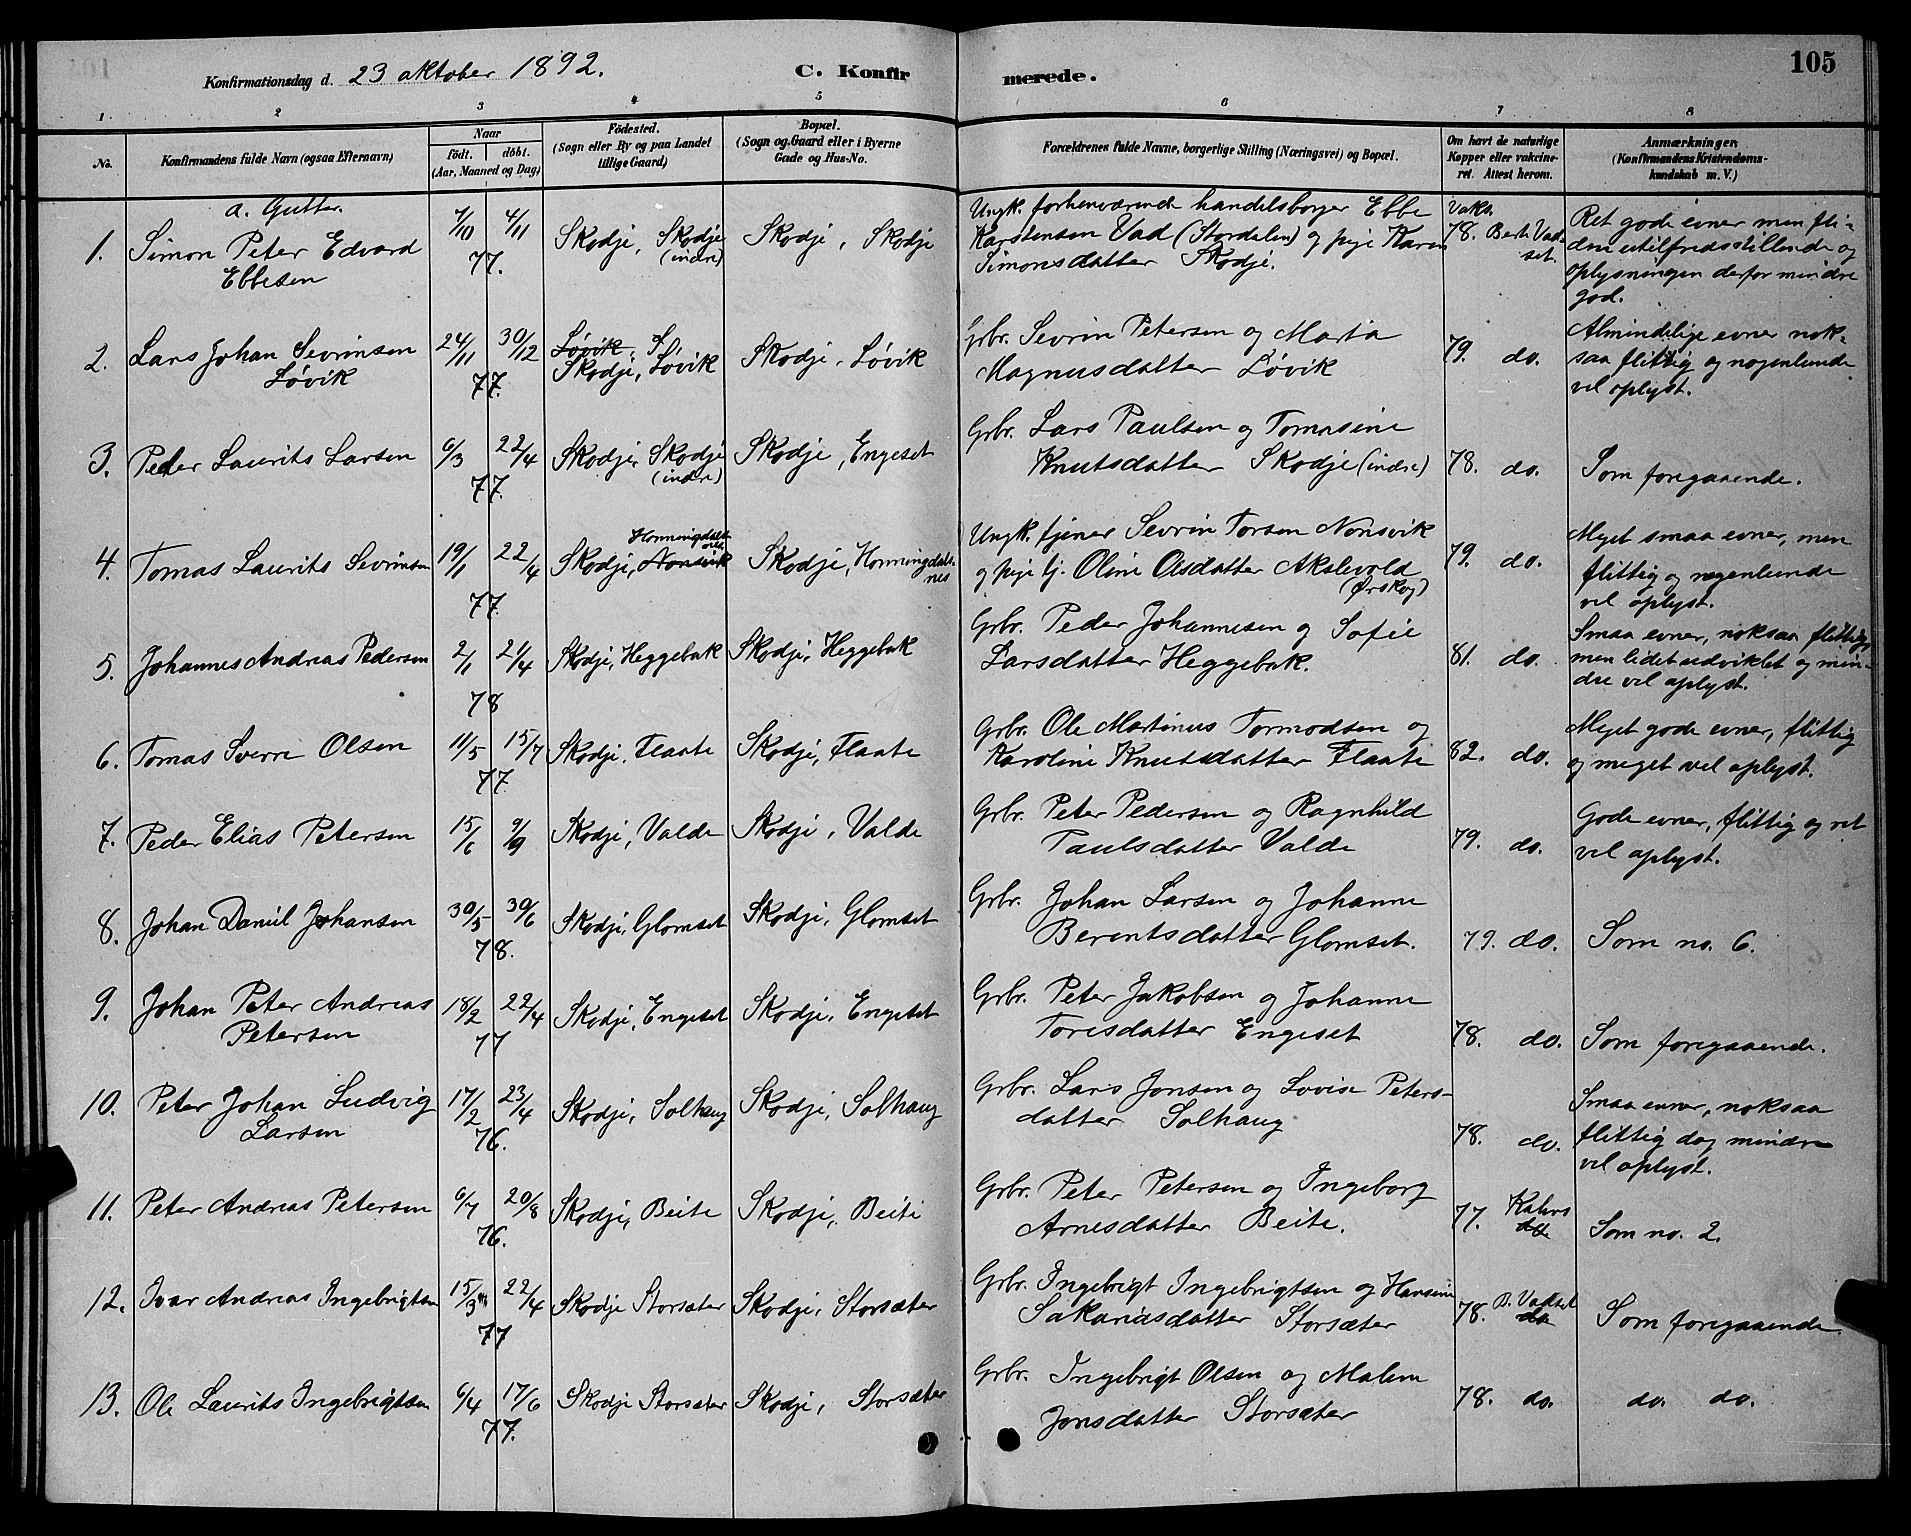 105
Konfirmationsdag d. 23 oktober 1892. C. Konfirmerede.
1 2 3 4 5 6 7 8
No.
Konfirmandens fulde Navn (ogsaa Efternavn)
Naar
födt. döbt.
(Aar, Maaned og Dag)
Födested.
(Sogn eller By og paa Landet
tillige Gaard)
Bopæl.
(Sogn og Gaard eller i Byerne
Gade og Hus-No.
Forældrenes fulde Navne, borgerlige Stilling (Næringsvei) og Bopæl.
Om havt de naturlige
Kopper eller vakcine-
ret. Attest herom.
Anmærkninger.
(Konfirmandens Kristendoms-
kundskab m. V.)
a. Gutter.
1. Simon Peter Edvard
Ebbesen
7/10 4/11
77.
Skodje, Skodje
(indre)
Skodje, Skodje
Ungk. forhenværende handelsborger Ebbe
Karstensen Vad (Stordalen) og pige Karen
Simonsdatter Skodje.
Vaks.
78. Bert. Vad-
set.
Ret gode evner men fli-
den utilfredsstillende og
oplysningen derfor mindre
god.
2. Lars Johan Sevrinsen
Løvik
24/11 30/12
77.
Løvik, S
Skodje, Løvik
Skodje, Løvik
Grbr. Sevrin Petersen og Marta
Magnusdatter Løvik
79. do.
Almindelige evner nok-
saa flittig og nogenlunde
vel oplyst.
3. Peder Laurits Larsen
6/3 22/4
77.
Skodje, Skodje
(indre)
Skodje, Engeset
Grbr. Lars Paulsen og Tomasine
Knutsdatter Skodje (indre)
78. do.
Som foregaaende.
4. Tomas Laurits Sevrinsen
19/1 22/4
77.
Skodje, Nonsvik
Skodje, Honningdals-
nes
Ungk. tjener Sevrin Torsen Nonsvik
og pige tj. Oline Olsdatter Akslevold
(Ørskog)
79. do.
Meget smaa evner, men
flittig og nogenlunde
vel oplyst.
5. Johannes Andreas Pedersen
2/1 21/4
78
Skodje, Heggebak
Skodje, Heggebak
Grbr. Peder Johannesen og Sofie
Larsdatter Heggebak.
81. do.
Smaa evner, noksaa flittig,
men lidet udviklet og min-
dre vel oplyst.
6. Tomas Sverre Olsen
11/5 15/7
77.
Skodje, Flaate
Skodje, Flaate
Grbr. Ole Martinus Tormodsen og
Karoline Knutsdatter Flaate
82. do.
Meget gode evner, flittig
og meget vel oplyst.
7. Peder Elias Petersen
15/6 9/9
Skodje, Valde
Skodje, Valde
Grbr. Peter Pedersen og Ragnhild
Paulsdatter Valde
79. do.
Gode evner, flittig og ret
vel oplyst.
8. Johan Daniel Johansen
30/5 30/6
78.
Skodje, Glomset
Skodje, Glomset
Grbr. Johan Larsen og Johanne
Berentsdatter Glomset.
79. do.
Som no. 6.
9. Johan Peter Andreas
Petersen
18/2 22/4
77
Skodje, Engeset
Skodje, Engeset
Grbr. Peter Jakobsen og Johanne
Toresdatter Engeset
78. do.
Som foregaaende.
10. Peter Johan Ludvig
Larsen
17/2 23/4
76.
Skodje, Solhaug
Skodje, Solhaug
Grbr. Lars Jonsen og Lovise Peters-
datter Solhaug
78. do.
Smaa evner, noksaa
flittig dog mindre
vel oplyst.
11. Peter Andreas Petersen
6/7 20/8
76.
Skodje, Beite
Skodje, Beite
Grbr. Peter Petersen og Ingeborg
Arnesdatter Beite.
77. Kahrs
do
Som no. 2.
12. Ivar Andreas Ingebrigtsen
15/3 22/4
77
Skodje Storsæter
Skodje, Storsæter
Grbr. Ingebrigt Ingebrigtsen og Hansine
Sakariasdatter Storsæter
78. B. Vadset
do
Som foregaaende.
13. Ole Laurits Ingebrigtsen
6/4 17/6
77.
Skodje Storsæter
Skodje, Storsæter
Grbr. Ingebrigt Olsen og Malene
Jonsdatter Storsæter
78. do.
do. do.